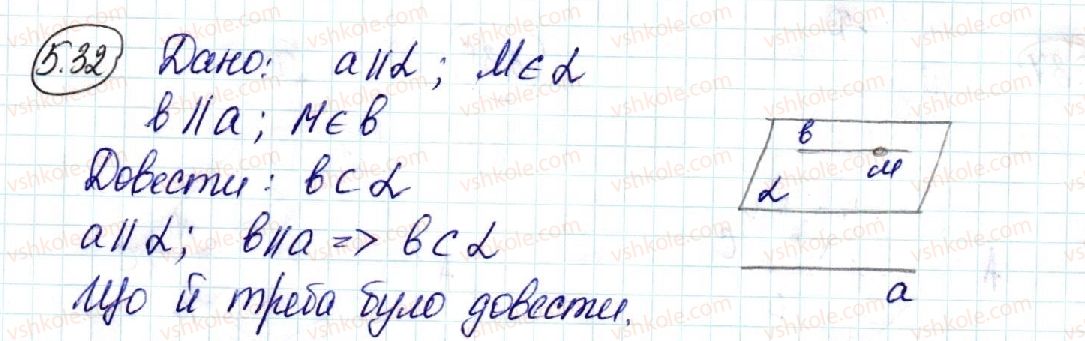 5.32 Дано: a||α; M∈α
b||a; M∈b
Довести: b⊂α
a||α; b||a => b⊂α
Що й треба було довести.
b
M
α
a